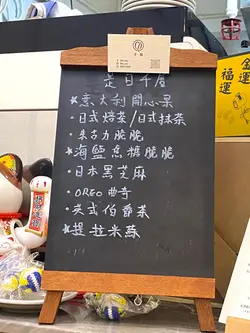 是日千層
★意大利開心果
・日式焙茶/日式抹茶
・朱古力脆脆
★海鹽焦糖脆脆
・日本黑芝麻
・OREO曲奇
・英式伯爵茶
★提拉米蘇
金運
福運